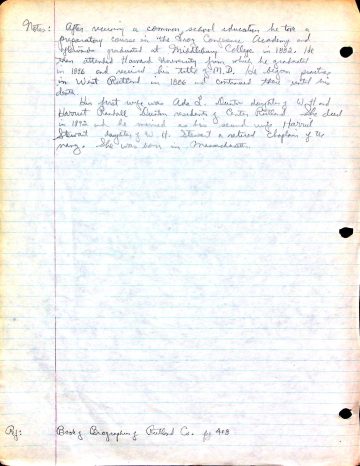 Notes: After receiving a common school education he took a
preparatory course in the Troy Conference Academy and
afterwards graduated at Middlebury College in 1882. He
then attended Harvard University from which he graduated
in 1886 and received his title of M.D. He began practice
in West Rutland in 1886 and continued there until his
death.
His first wife was Ada L. daughter of W. H. and
Harriet residents of Center Rutland. She died
in 1892 and he married as his second wife Harriet
Stewart daughter of W. H. Stewart a retired Chaplain of the
navy. She was born in Massachusetts.
Ref: Book of Biographies of Rutland Co. pg 408